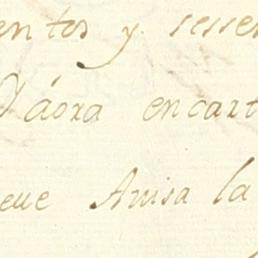 entos y sessen
áora encart
eue Avisa la